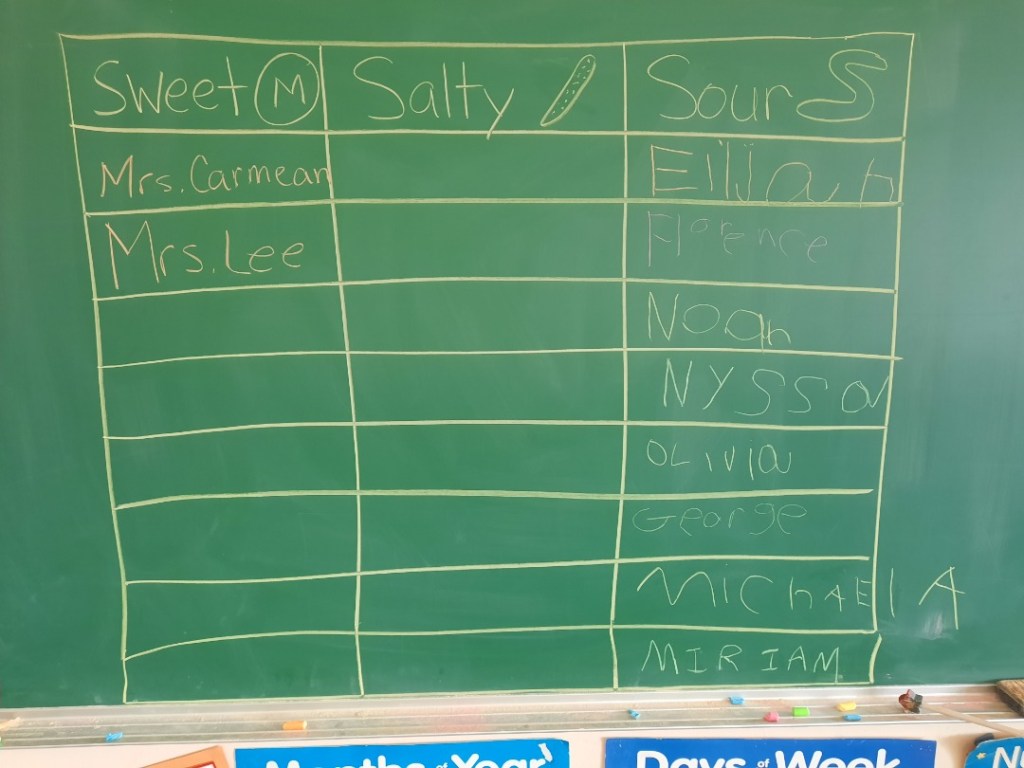 Sweet M Salty Sour
Mrs. Carmean Elijah
Mrs. Lee Florence
Noah
NYSSa
OLIVIa
George
MICHAElA
MIRIAM
Months of Year
Days of Week